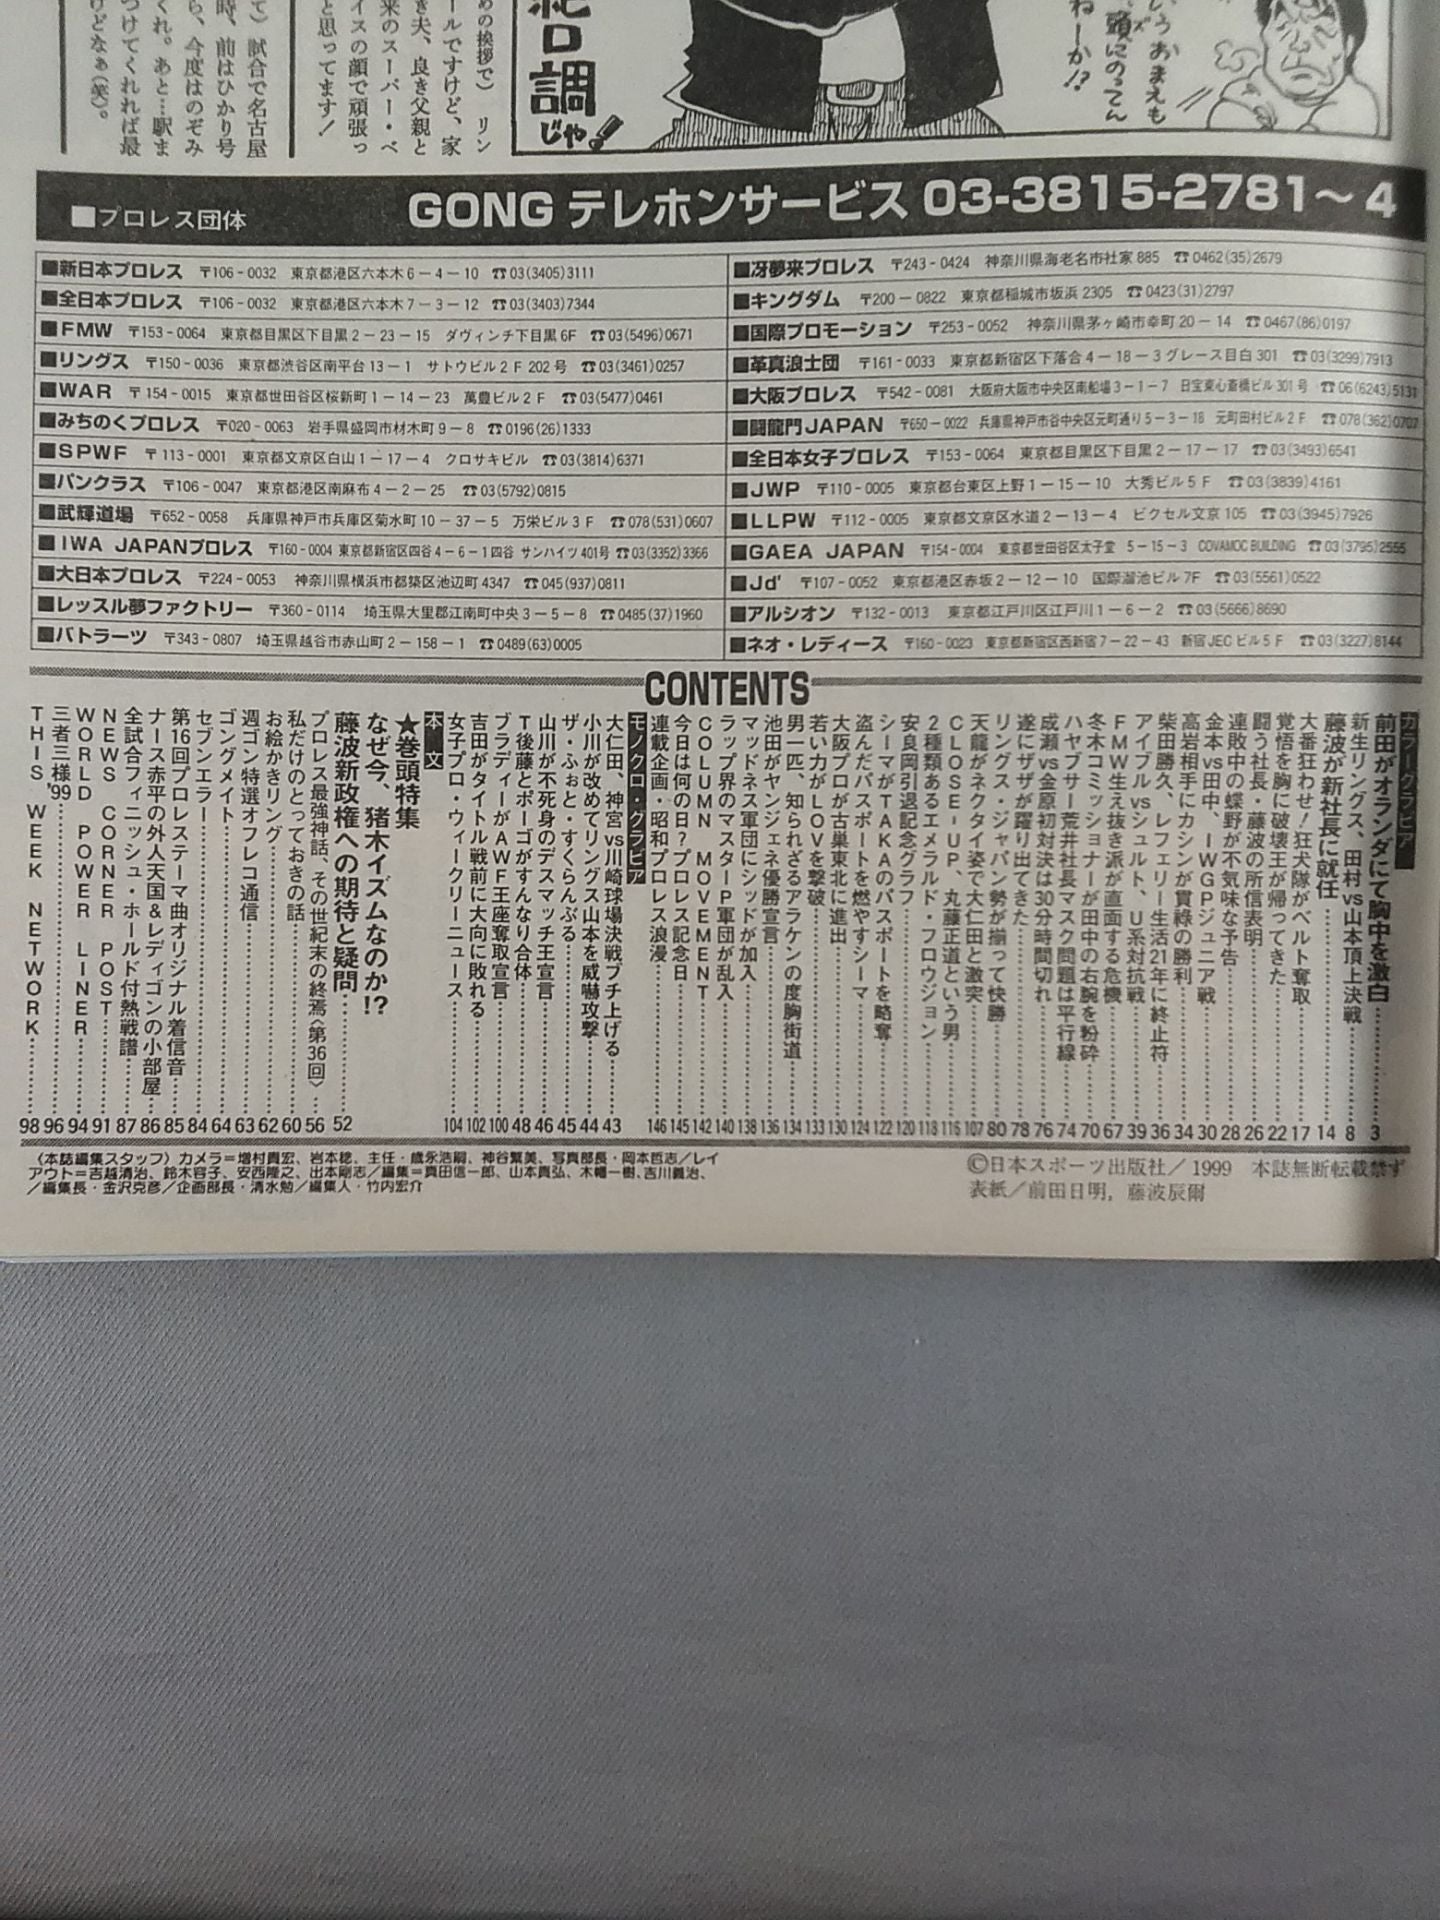 めの挨拶で）リン
ールですけど、家
き夫、良き父親と
来のスーパー・ベ
イスの顔で頑張っ
と思ってます！
て）試合で名古屋
時、前はひかり号
ら、今度はのぞみ
くれ。あと…駅ま
つけてくれれば最
けどなぁ（笑）。
調じゃ！
いうおまえも
頭にのってん
ねーか!?
■プロレス団体
GONG テレホンサービス 03-3815-2781～4
■新日本プロレス 〒106-0032 東京都港区六本木6-4-10 ☎03(3405)3111
■全日本プロレス 〒106-0032 東京都港区六本木7-3-12 ☎03(3403)7344
■FMW 〒153-0064 東京都目黒区下目黒2-23-15 ダヴィンチ下目黒6F ☎03(5496)0671
■リングス 〒150-0036 東京都渋谷区南平台13-1 サトウビル2F202号 ☎03(3461)0257
■WAR 〒154-0015 東京都世田谷区桜新町1-14-23 萬豊ビル2F ☎03(5477)0461
■みちのくプロレス 〒020-0063 岩手県盛岡市材木町9-8 ☎0196(26)1333
■SPWF 〒113-0001 東京都文京区白山1-17-4 クロサキビル ☎03(3814)6371
■パンクラス 〒106-0047 東京都港区南麻布4-2-25 ☎03(5792)0815
■武輝道場 〒652-0058 兵庫県神戸市兵庫区菊水町10-37-5 万栄ビル3F ☎078(531)0607
■IWA JAPANプロレス 〒160-0004 東京都新宿区四谷4-6-1四谷サンハイツ401号 ☎03(3352)3366
■大日本プロレス 〒224-0053 神奈川県横浜市都築区池辺町4347 ☎045(937)0811
■レッスル夢ファクトリー 〒360-0114 埼玉県大里郡江南町中央3-5-8 ☎0485(37)1960
■バトラーツ 〒343-0807 埼玉県越谷市赤山町2-158-1 ☎0489(63)0005
■冴夢来プロレス 〒243-0424 神奈川県海老名市社家885 ☎0462(35)2679
■キングダム 〒200-0822 東京都稲城市坂浜2305 ☎0423(31)2797
■国際プロモーション 〒253-0052 神奈川県茅ヶ崎市幸町20-14 ☎0467(86)0197
■革真浪士団 〒161-0033 東京都新宿区下落合4-18-3グレース目白301 ☎03(3299)7913
■大阪プロレス 〒542-0081 大阪府大阪市中央区南船場3-1-7 日宝東心斎橋ビル301号 ☎06(6243)5131
■闘龍門JAPAN 〒650-0022 兵庫県神戸市谷中央区元町通り5-3-18 元町田村ビル2F ☎078(362)0707
■全日本女子プロレス 〒153-0064 東京都目黒区下目黒2-17-17 ☎03(3493)6541
■JWP 〒110-0005 東京都台東区上野1-15-10 大秀ビル5F ☎03(3839)4161
■LLPW 〒112-0005 東京都文京区水道2-13-4 ビクセル文京105 ☎03(3945)7926
■GAEA JAPAN 〒154-0004 東京都世田谷区太子堂5-15-3 COVAMOC BUILDING ☎03(3795)2555
■Jd' 〒107-0052 東京都港区赤坂2-12-10 国際溜池ビル7F ☎03(5561)0522
■アルシオン 〒132-0013 東京都江戸川区江戸川1-6-2 ☎03(5666)8690
■ネオ・レディース 〒160-0023 東京都新宿区西新宿7-22-43 新宿JECビル5F ☎03(3227)8144
CONTENTS
カラーグラビア
前田がオランダにて胸中を激白……3
新生リングス、田村vs山本頂上決戦……8
藤波が新社長に就任……14
大番狂わせ！狂犬隊がベルト奪取……17
覚悟を胸に破壊王が帰ってきた……22
闘う社長・藤波の所信表明……26
連敗中の蝶野が不気味な予告……28
金本vs田中、IWGPジュニア戦……30
高岩相手にカシンが貫祿の勝利……34
柴田勝久、レフェリー生活21年に終止符……36
アイブルvsシュルト、U系対抗戦……39
FMW生え抜き派が直面する危機……67
冬木コミッショナーが田中の右腕を粉砕……70
ハヤブサー荒井社長マスク問題は平行線……74
成瀬vs金原初対決は30分時間切れ……76
遂にザザが躍り出てきた……78
リングス・ジャパン勢が揃って快勝……80
天龍がネクタイ姿で大仁田と激突……107
CLOSE-UP、丸藤正道という男……116
2種類あるエメラルド・フロウジョン……118
安良岡引退記念グラフ……120
シーマがTAKAのパスポートを略奪……122
盗んだパスポートを燃やすシーマ……124
大阪プロが古巣東北に進出……130
若い力がLOVを撃破……133
男一匹、知られざるアラケンの度胸街道……134
池田がヤンジェネ優勝宣言……136
マッドネス軍団にシッドが加入……138
ラップ界のマスターP軍団が乱入……140
COLUMN MOVEMENT……142
今日は何の日？プロレス記念日……145
連載企画・昭和プロレス浪漫……146
モノクロ・グラビア
大仁田、神宮vs川崎球場決戦ブチ上げる……43
小川が改めてリングス山本を威嚇攻撃……44
ザ・ふぉと・すくらんぶる……45
山川が不死身のデスマッチ王宣言……46
T後藤とポーゴがすんなり合体……48
ブラディーがAWF王座奪取宣言……100
吉田がタイトル戦前に大向に敗れる……102
女子プロ・ウィークリーニュース……104
本文
★巻頭特集
なぜ今、猪木イズムなのか!?
藤波新政権への期待と疑問……52
プロレス最強神話、その世紀末の終焉〈第36回〉…56
私だけのとっておきの話……60
お絵かきリング……62
週ゴン特選オフレコ通信……63
ゴングメイト……64
セブンエラー……84
第16回プロレステーマ曲オリジナル着信音……85
ナース赤平の外人天国＆レディゴンの小部屋……86
全試合フィニッシュ・ホールド付熱戦譜……87
NEWS CORNER POST……91
WORLD POWER LINER……94
三者三様'99……96
THIS WEEK NETWORK……98
〈本誌編集スタッフ〉カメラ＝増村貴宏、岩本稔、主任・歳永浩嗣、神谷繁美、写真部長・岡本哲志／レイ
アウト＝吉越清治、鈴木容子、安西隆之、出本剛志／編集＝真田信一郎、山本貴弘、木幡一樹、吉川義治、
／編集長・金沢克彦／企画部長・清水勉／編集人・竹内宏介
©日本スポーツ出版社／1999 本誌無断転載禁ず
表紙／前田日明，藤波辰爾